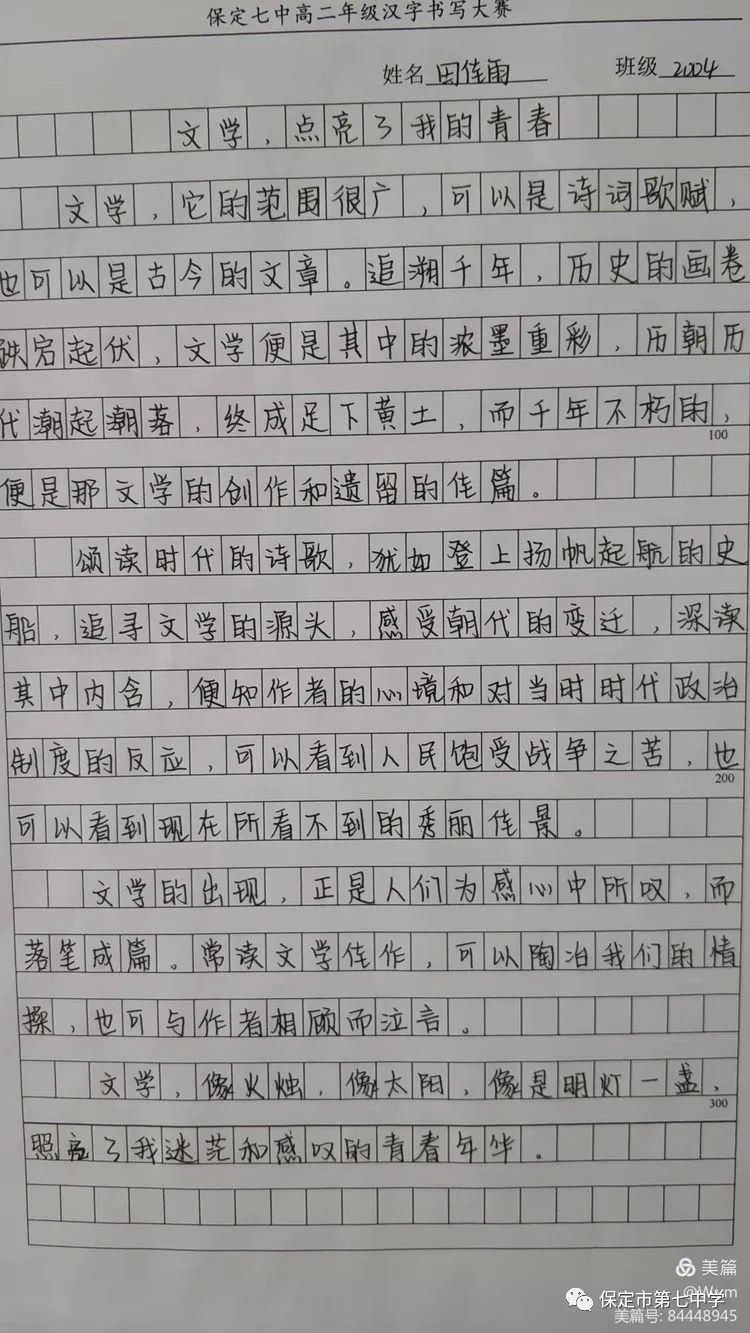 保定七中高二年级汉字书写大赛
姓名 田佳雨 班级 2004
文学，点亮了我的青春
文学，它的范围很广，可以是诗词歌赋，
也可以是古今的文章。追溯千年，历史的画卷
跌宕起伏，文学便是其中的浓墨重彩，历朝历
代潮起潮落，终成足下黄土，而千年不朽的，
100
便是那文学的创作和遗留的佳篇。
颂读时代的诗歌，犹如登上扬帆起航的史
船，追寻文学的源头，感受朝代的变迁，深读
其中内含，便知作者的心境和对当时时代政治
制度的反应，可以看到人民饱受战争之苦，也
200
可以看到现在所看不到的秀丽佳景。
文学的出现，正是人们为感心中所叹，而
落笔成篇。常读文学佳作，可以陶冶我们的情
操，也可与作者相顾而泣言。
文学，像火烛，像太阳，像是明灯一盏，
300
照亮了我迷茫和感叹的青春年华。
美篇
@Wxm
保定市第七中学
美篇号: 84448945